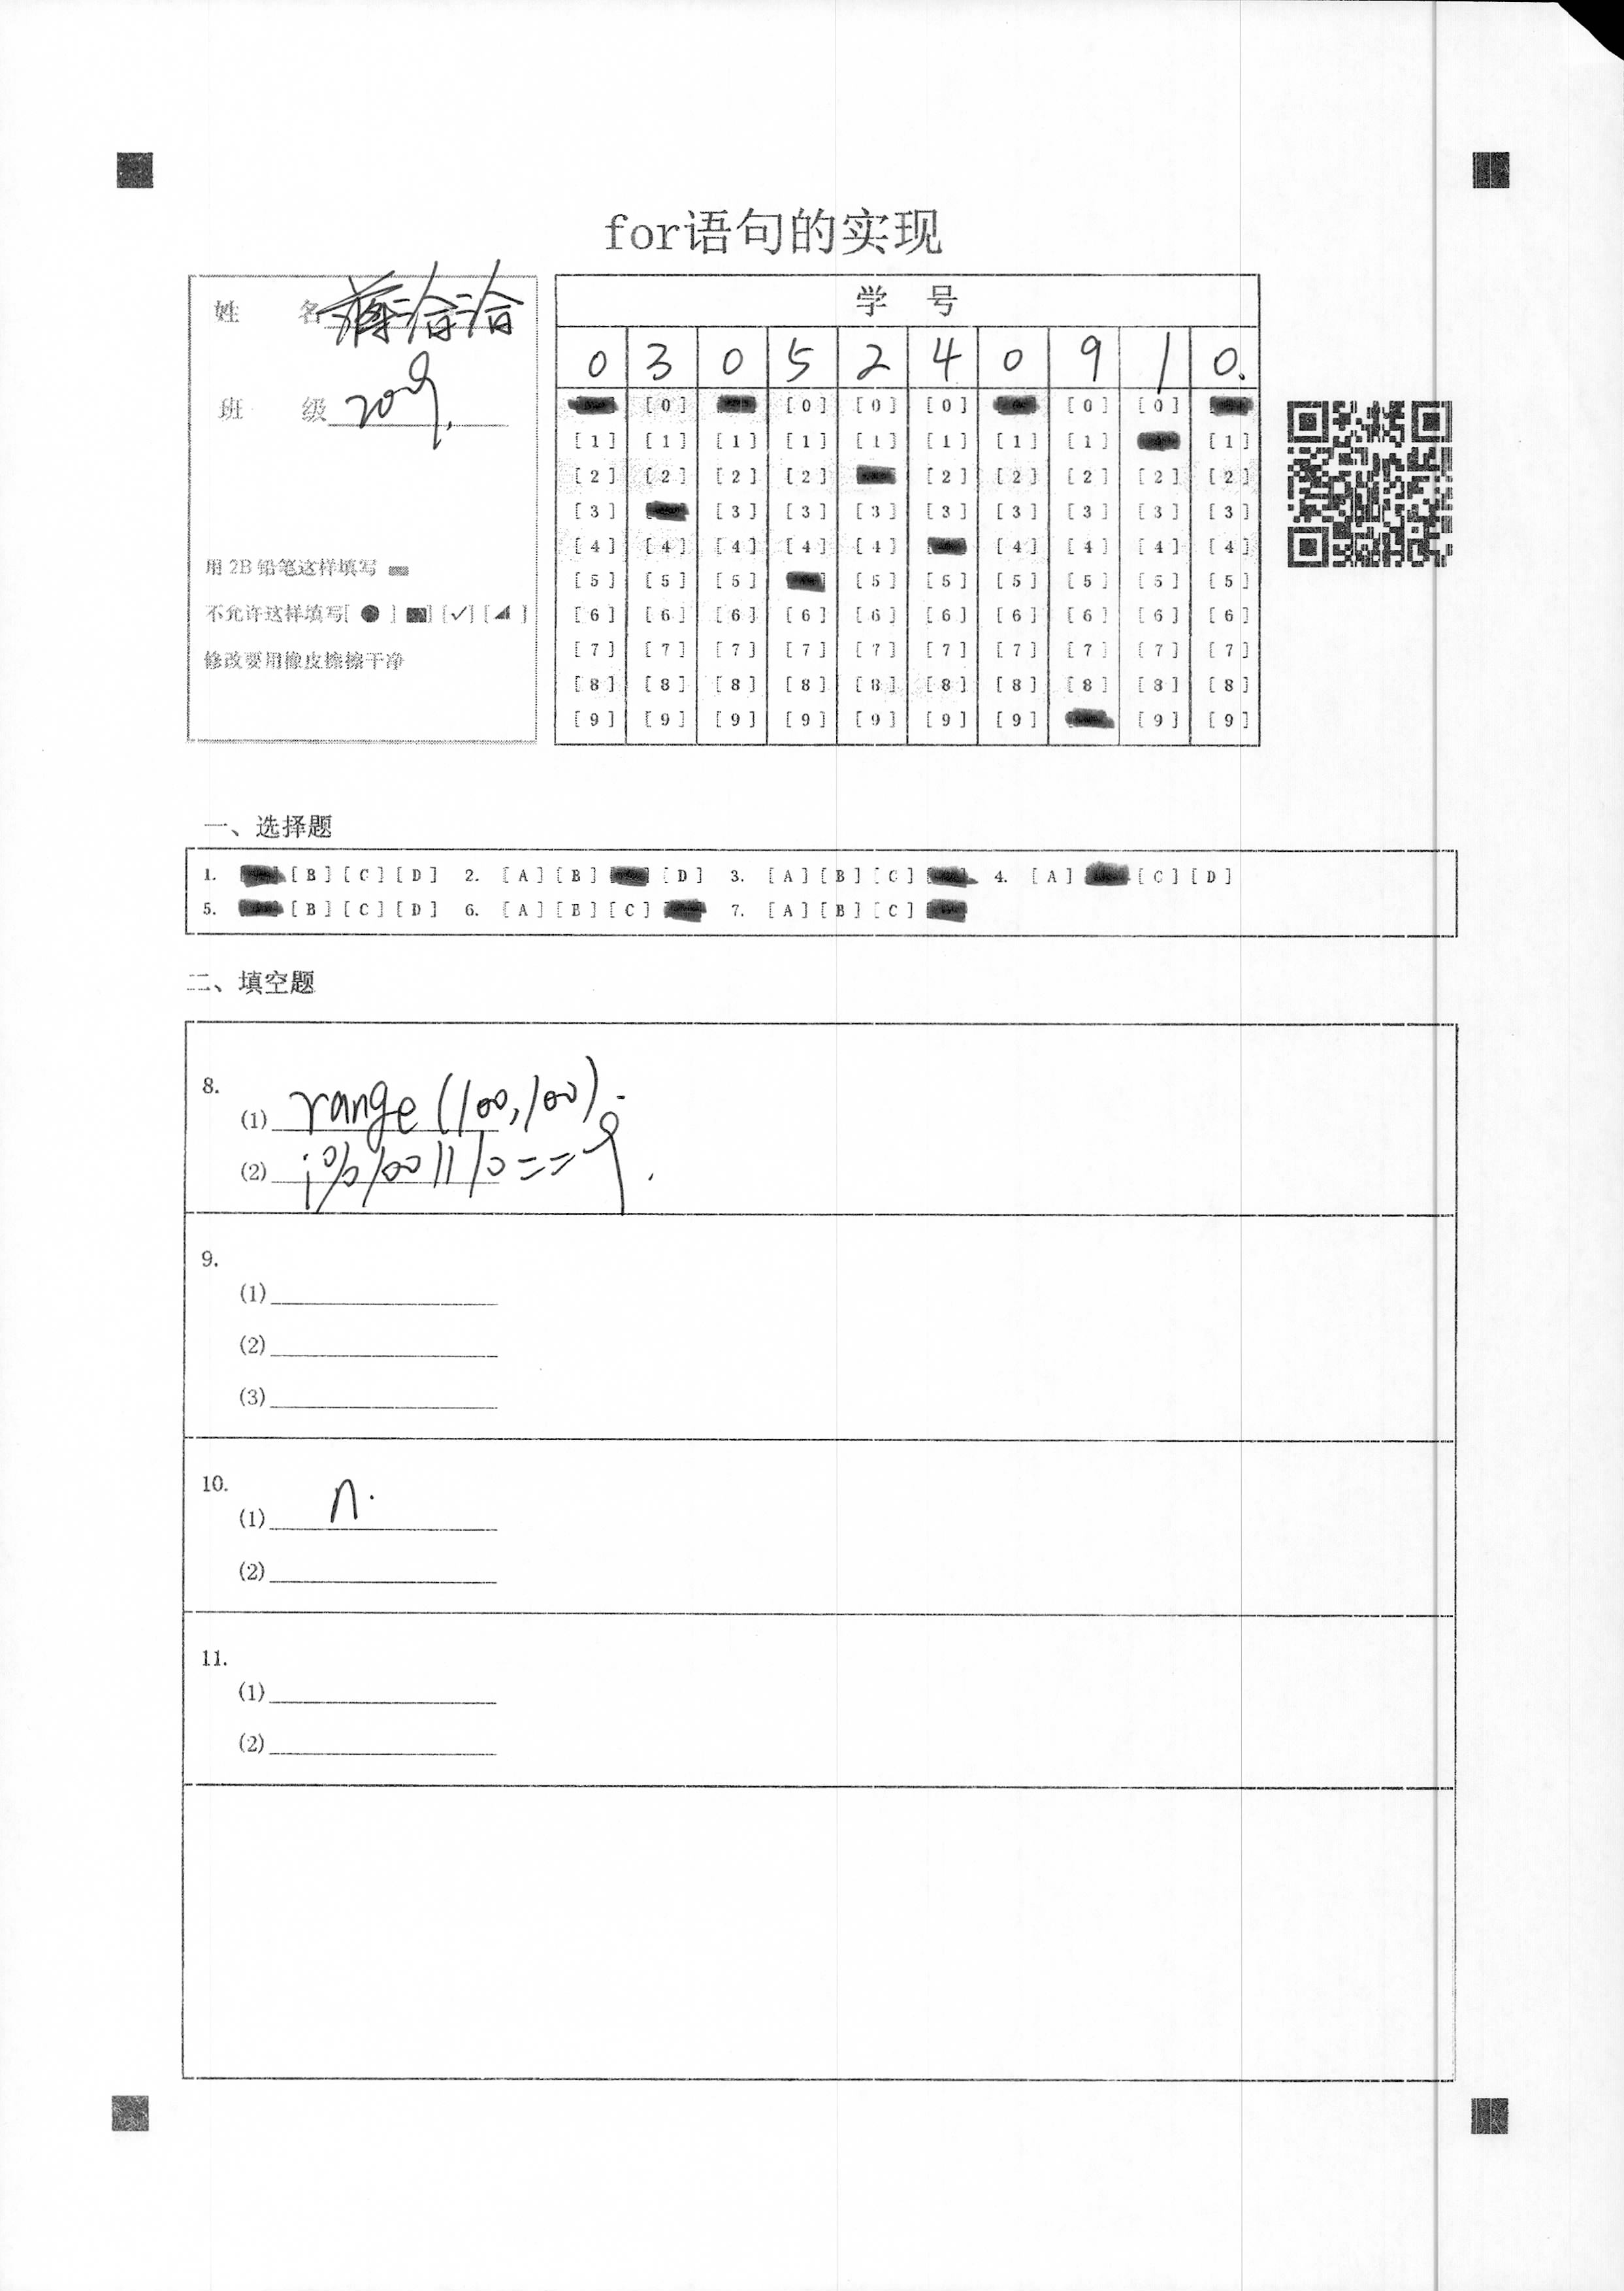 for语句的实现
姓 名 蒋洽洽
班 级 2009.
用 2B 铅笔这样填写
不允许这样填写[ ● ] [■] [✓] [◢ ]
修改要用橡皮擦擦干净
学 号
0 3 0 5 2 4 0 9 1 0.
[0] [0] [0] [0] [0] [0]
[1] [1] [1] [1] [1] [1] [1] [1] [1]
[2] [2] [2] [2] [2] [2] [2] [2] [2]
[3] [3] [3] [3] [3] [3] [3] [3] [3]
[4] [4] [4] [4] [4] [4] [4] [4] [4]
[5] [5] [5] [5] [5] [5] [5] [5] [5]
[6] [6] [6] [6] [6] [6] [6] [6] [6] [6]
[7] [7] [7] [7] [7] [7] [7] [7] [7] [7]
[8] [8] [8] [8] [8] [8] [8] [8] [8] [8]
[9] [9] [9] [9] [9] [9] [9] [9] [9]
一、选择题
1. [B] [C] [D] 2. [A] [B] [D] 3. [A] [B] [C] 4. [A] [C] [D]
5. [B] [C] [D] 6. [A] [B] [C] 7. [A] [B] [C]
二、填空题
8.
(1) range(100,100).
(2) i%100//10==9.
9.
(1)
(2)
(3)
10.
(1) n.
(2)
11.
(1)
(2)